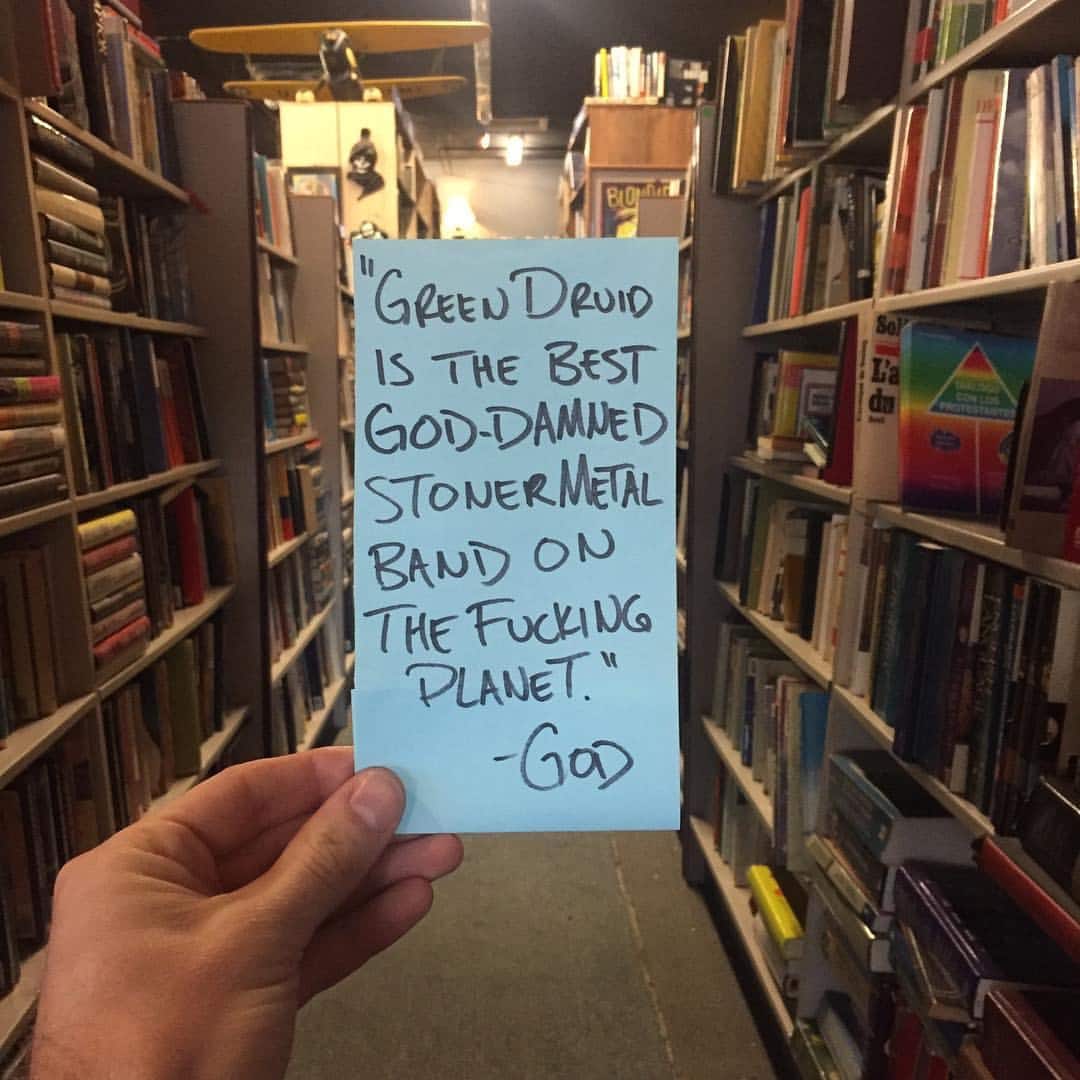 "GREEN DRUID
IS THE BEST
GOD-DAMNED
STONER METAL
BAND ON
THE FUCKING
PLANET."
-GOD
BLONDIE
Sol
L'a
du
DIALOGO
CON LOS
PROTESTANTES